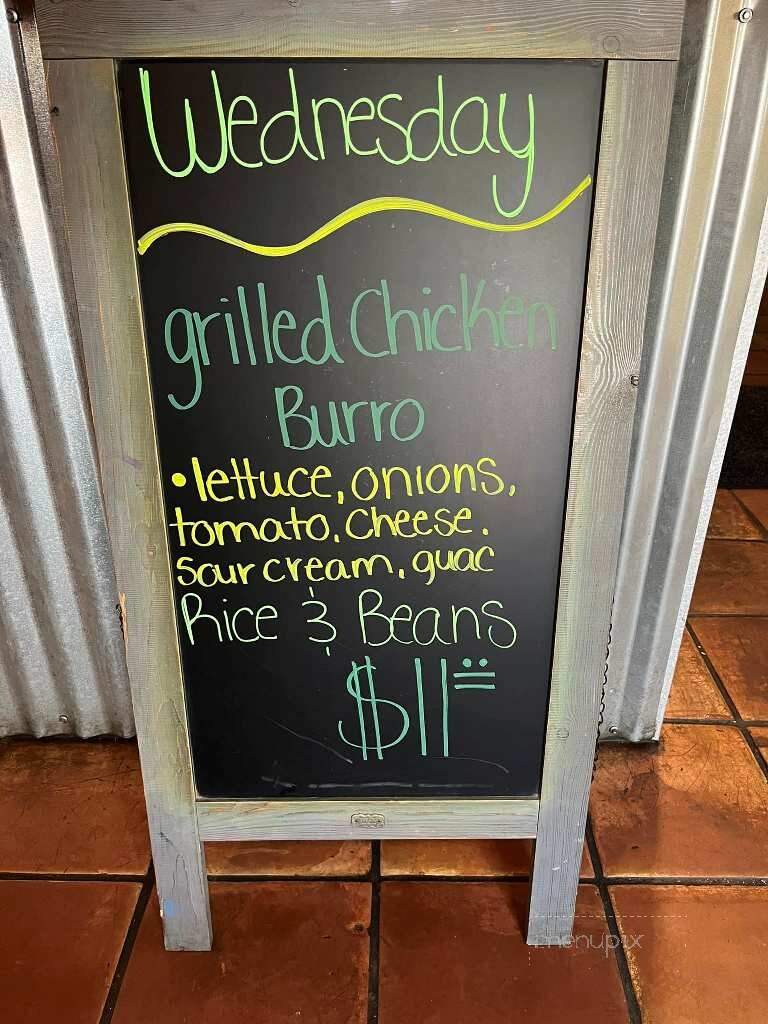 Wednesday
grilled Chicken
Burro
• lettuce, onions,
tomato, cheese.
sour cream, guac
Rice & Beans
$11
menupix